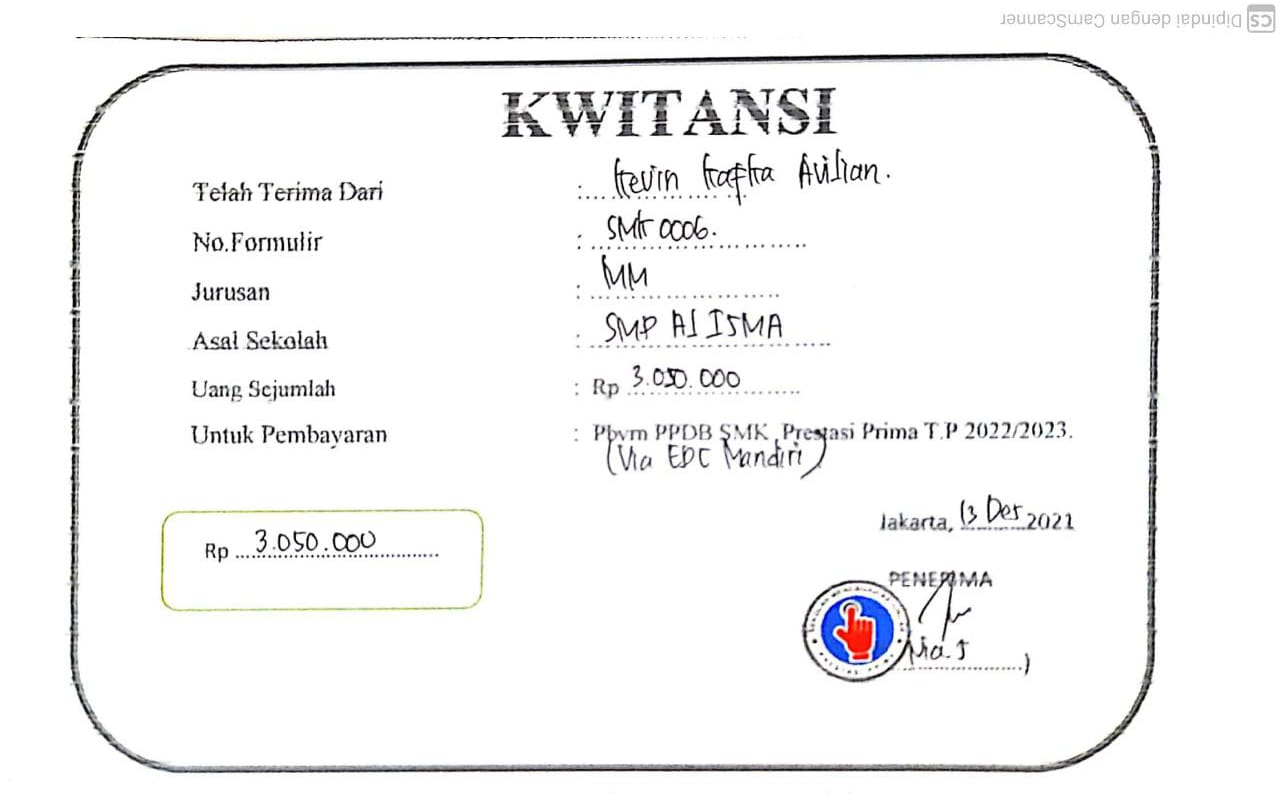 Dipindai dengan CamScanner
KWITANSI
Telah Terima Dari : Kevin Kafka Avilian.
No.Formulir : SMK 0006.
Jurusan : MM
Asal Sekolah : SMP Al ISMA
Uang Sejumlah : Rp 3.050.000
Untuk Pembayaran : Pbym PPDB SMK Prestasi Prima T.P 2022/2023.
(Via EDC Mandiri)
Jakarta, 13 Des 2021
Rp 3.050.000
PENERIMA